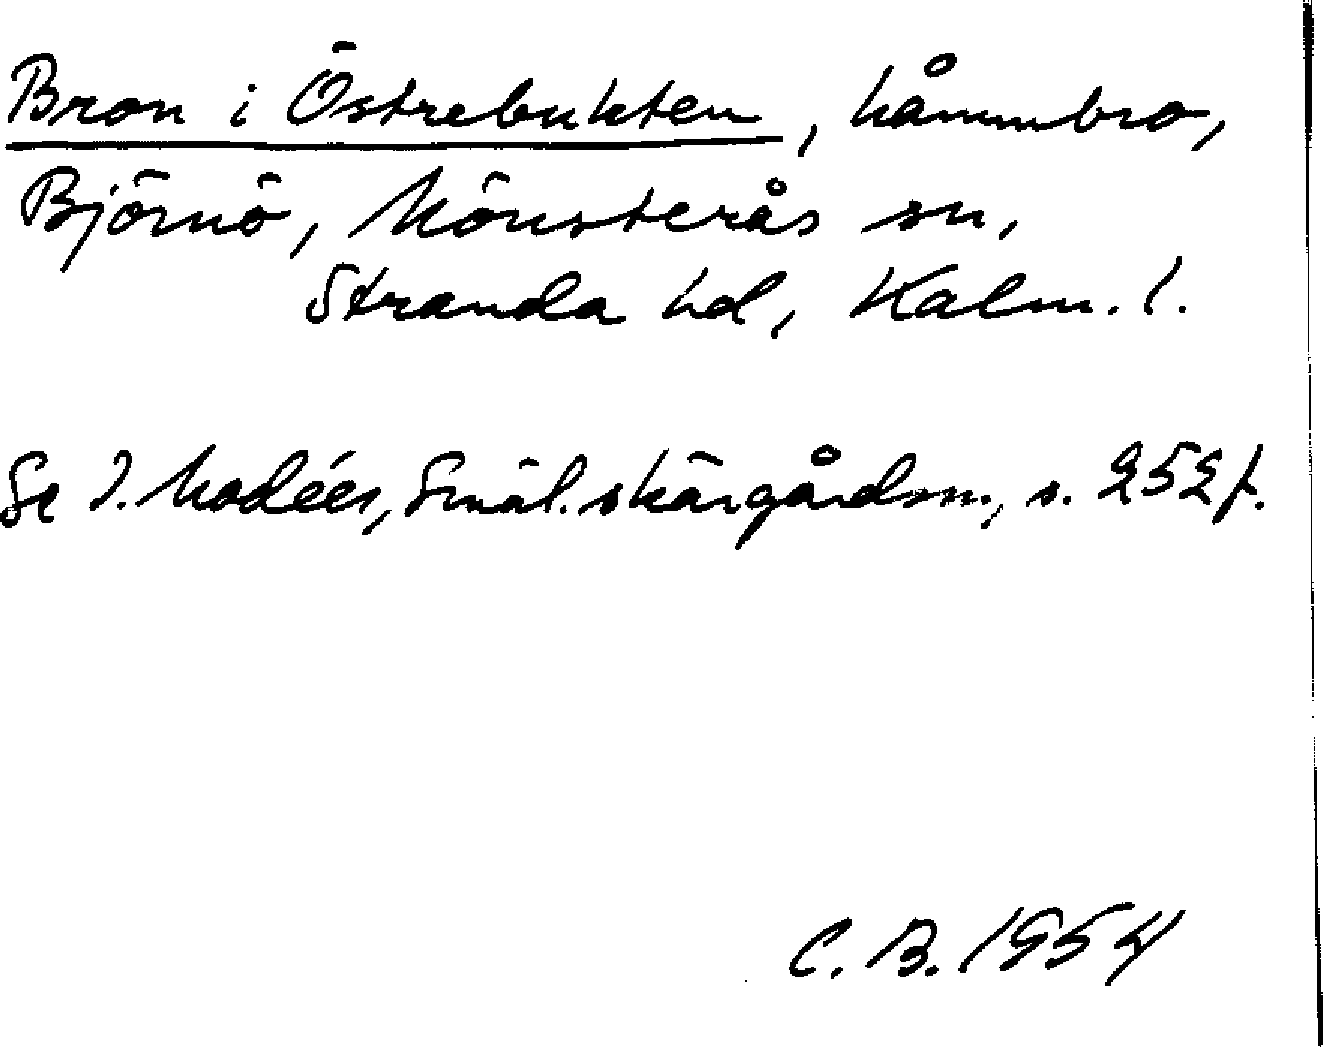 Bron i Östrebukten, håmmbro,
Björnö, Mönsterås sn,
Stranda hd, Kalm. l.
Se I. Modéer, Smål. skärgårdsn., s. 252 f.
C. B. 1954